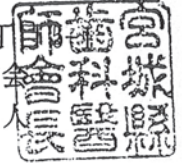 宮城縣
齒科醫
師會長